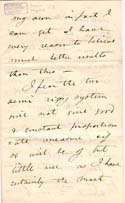 my own in fact I
can get I have
every reason to believe
much better results
than this —
I fear the two
semi
will not give good
& constant proportion
will be of but
little use as I have
certainly the most